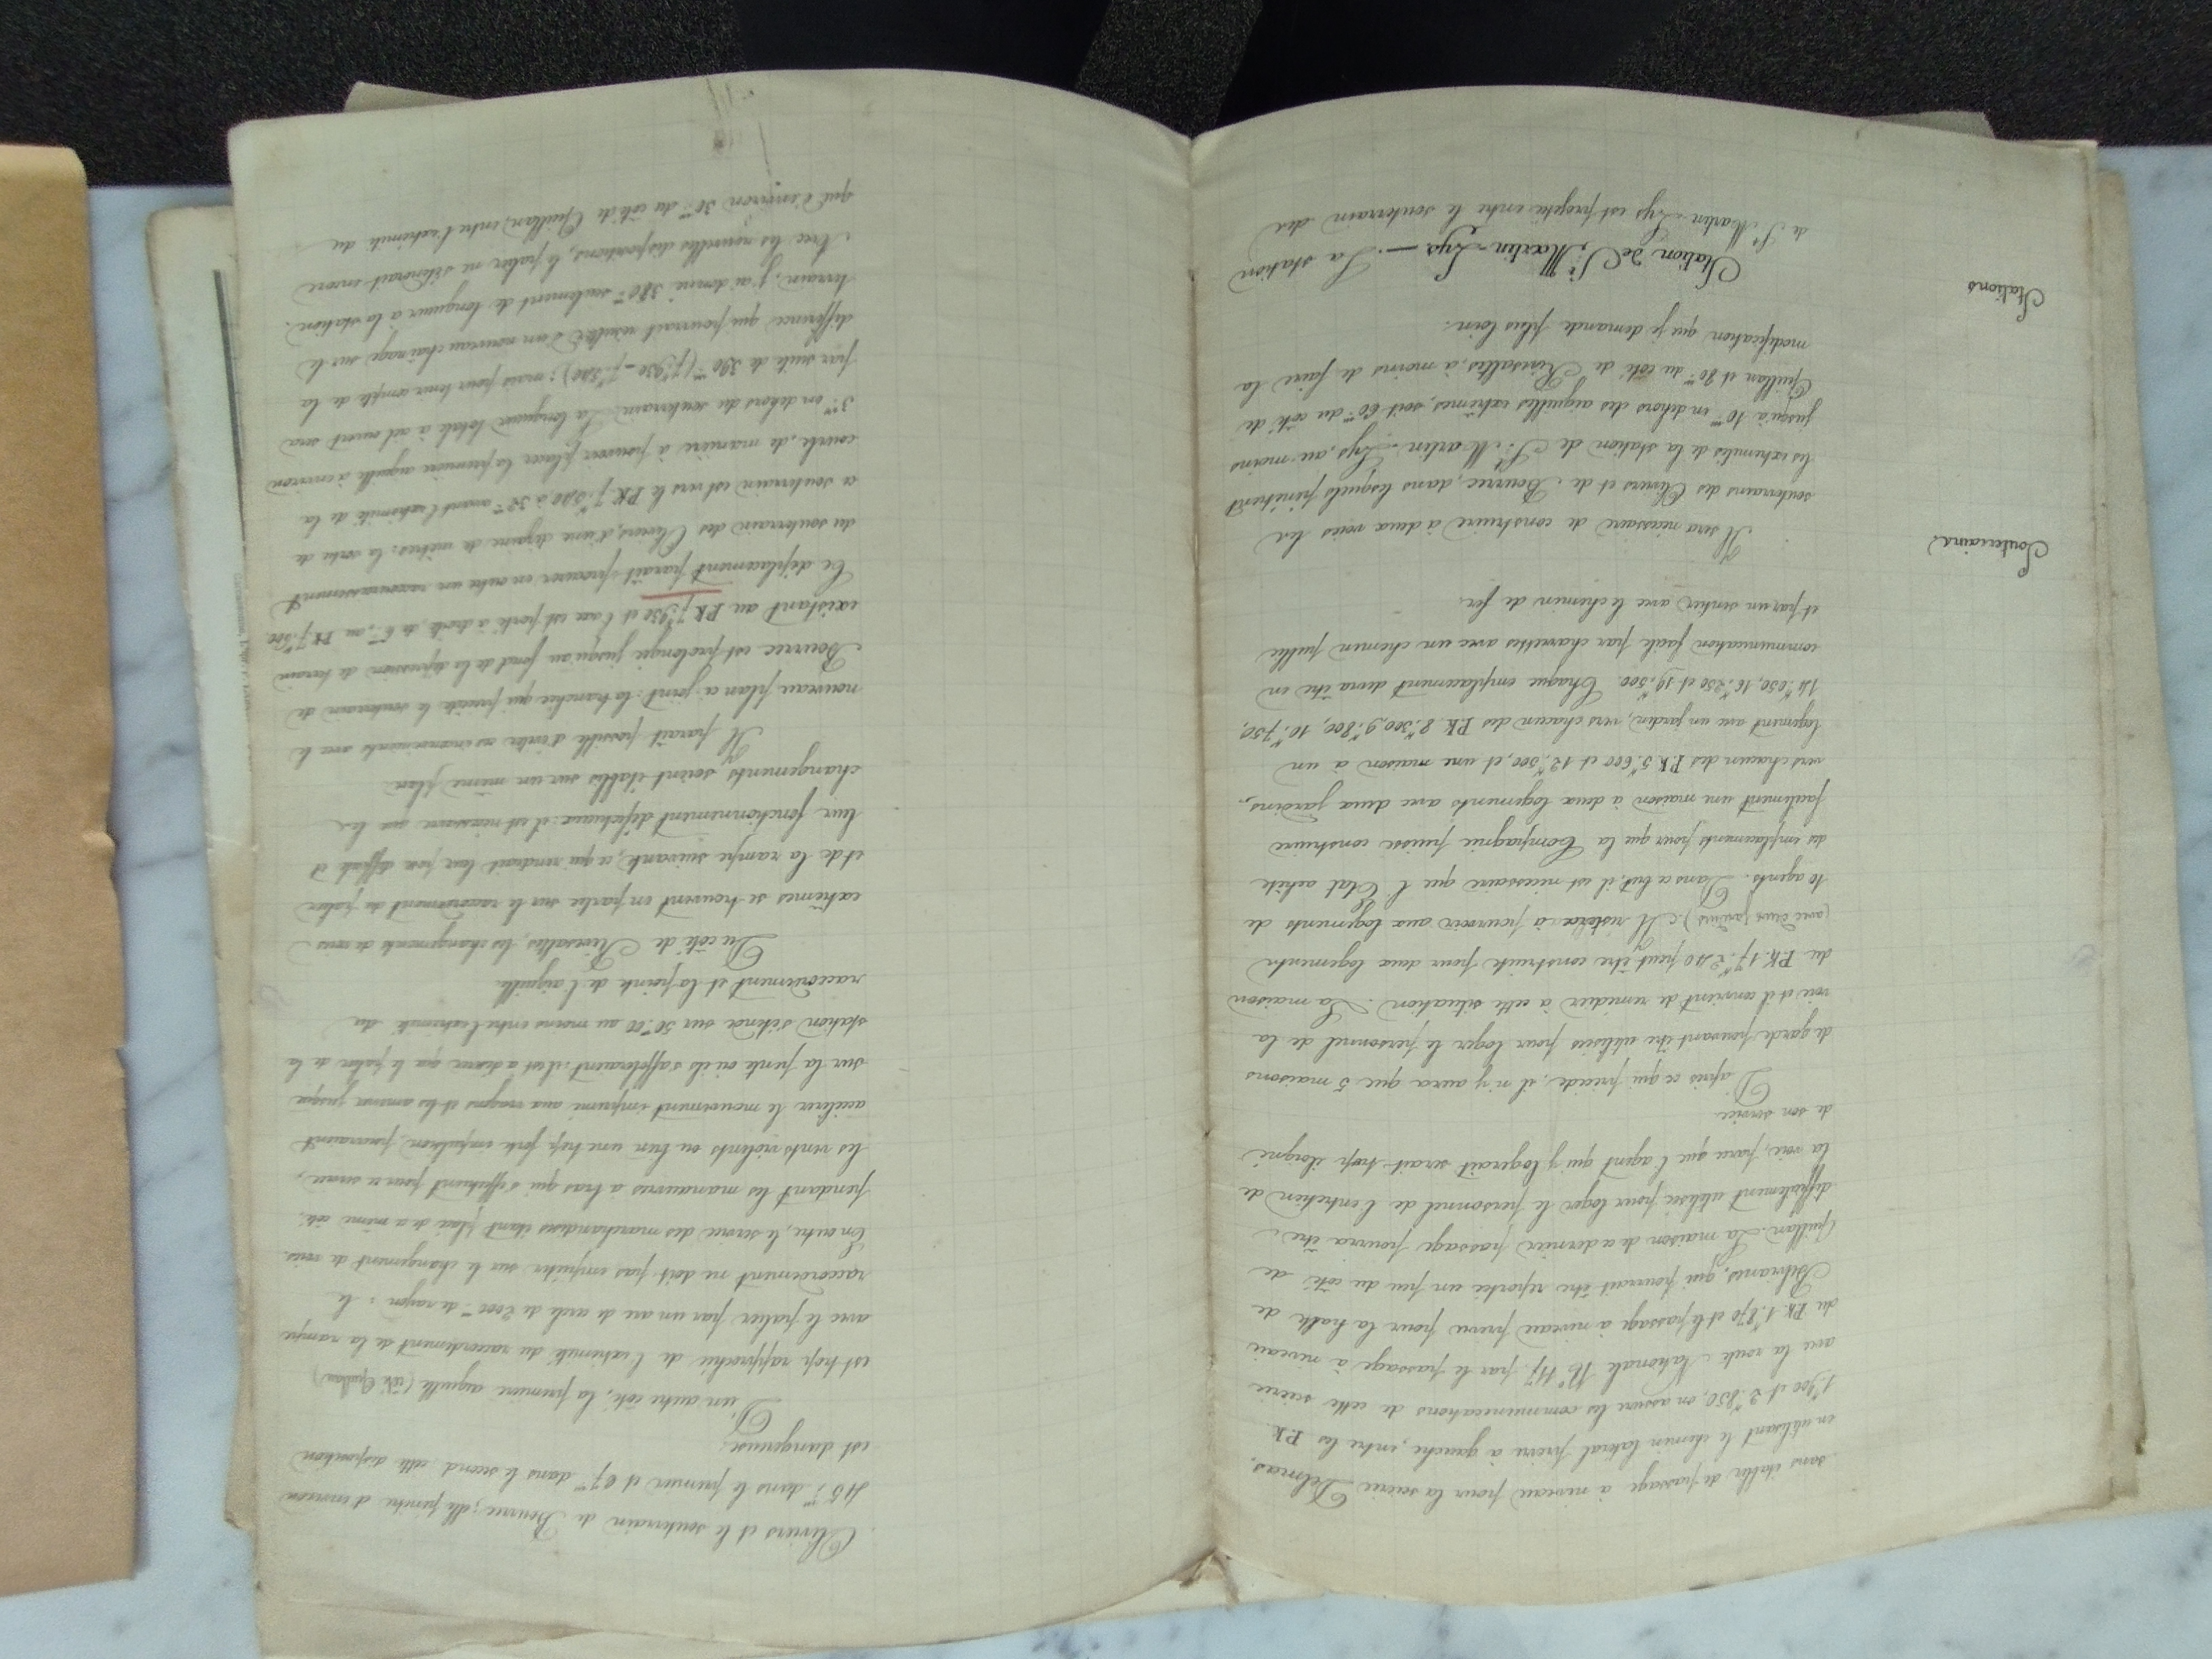 sans établir de passage à niveau pour la scierie Delmas,
en utilisant le chemin latéral prévu à gauche, entre les P.K.
1.K900 et 2.K850, on assure les communications de cette scierie
avec la route Nationale N° 117 par le passage à niveau
du P.K. 1.K870 et le passage à niveau prévu pour la halte de
Belvianes, qui pourrait être reportée un peu du côté de
Quillan. La maison de ce dernier passage pourra être
difficilement utilisée pour loger le personnel de l'entretien de
la voie, parce que l'agent qui y logerait serait trop éloigné
de son service.
D'après ce qui précède, il n'y aura que 5 maisons
de garde pouvant être utilisées pour loger le personnel de la
voie et il convient de remédier à cette situation. La maison
du P.K. 17.K240 peut être construite pour deux logements
(avec deux jardins). Il restera à pourvoir aux logements de
10 agents. Dans ce but, il est nécessaire que l'Etat achète
des emplacements pour que la Compagnie puisse construire
facilement une maison à deux logements avec deux jardins,
vers chacun des P.K. 5.K600 et 12.K500, et une maison à un
logement avec un jardin, vers chacun des P.K. 8.K300, 9.K800, 10.K750,
14.K050, 16.K250 et 19.K500. Chaque emplacement devra être en
communication facile par charrettes avec un chemin public
et par un sentier avec le chemin de fer.
Souterrains.
Il sera nécessaire de construire à deux voies les
souterrains des Oliviers et de Bourrec, dans lesquels pénètrent
les extremités de la station de St. Martin-Lys, au moins
jusqu'à 10m en dehors des aiguilles extrêmes, soit 60m du côté de
Quillan et 80m du côté de Rivesaltes, à moins de faire la
modification que je demande plus loin.
Stations
Station de St. Martin-Lys. —. La station
de St Martin-Lys est projetée entre le souterrain des
Oliviers et le souterrain de Bourrec ; elle pénètre d'environ
45m dans le premier et 67m dans le second ; cette disposition
est dangereuse.
D'un autre côté, la première aiguille (côté Quillan)
est trop rapprochée de l'extrémité du raccordement de la rampe
avec le palier par un arc de cercle de 2000m de rayon : le
raccordement ne doit pas empiéter sur le changement de voies.
En outre, le service des marchandises étant placé de ce même côté,
pendant les manœuvres à bras qui s'effectuent pour ce service,
les vents violents ou bien une trop forte impulsion pourraient
accélérer le mouvement imprimé aux wagons et les amener jusque
sur la pente où ils s'affoleraient : il est à désirer que le palier de la
station s'étende sur 50m00 au moins entre l'extrémité du
raccordement et la pointe de l'aiguille.
Du côté de Rivesaltes, les changements de voies
extrêmes se trouvent en partie sur le raccordement du palier
et de la rampe suivante, ce qui rendrait leur pose difficile et
leur fonctionnement défectueux : il est nécessaire que les
changements soient établis sur un même plan.
Il paraît possible d'éviter ces inconvénients avec le
nouveau plan ci-joint : la tranchée qui précède le souterrain de
Bourrec est prolongée jusqu'au fond de la dépression de terrain
existant au P.K 7.K930 et l'axe est porté à droite, de 6m, au P.K. 7.K600.
Ce déplacement paraît procurer en outre un raccourcissement
du souterrain des Oliviers, d'une dizaine de mètres : la sortie de
ce souterrain est vers le P.K. 7.K540, à 32m avant l'extrémité de la
courbe, de manière à pouvoir placer la première aiguille à environ
3m en dehors du souterrain. La longueur totale à ciel ouvert sera
par suite de 390m (7.K930 - 7.K540) ; mais pour tenir compte de la
différence qui pourrait résulter d'un nouveau chaînage sur le
terrain, j'ai donné 380m seulement de longueur à la station.
Avec les nouvelles dispositions, le palier ne s'étendrait encore
que d'environ 30m du côté de Quillan, entre l'extrémité du